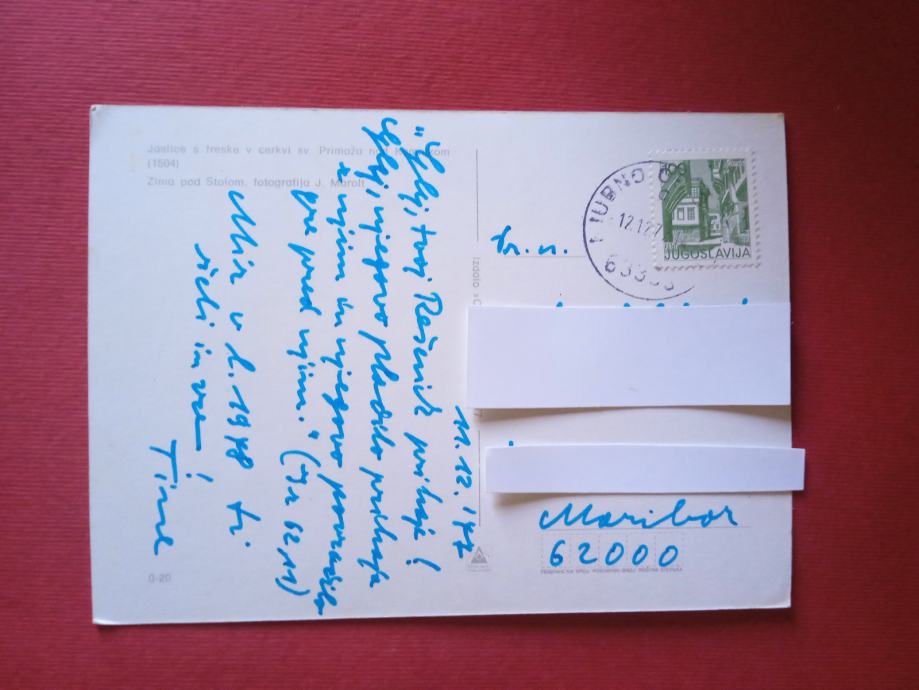 Jaslice s freske v cerkvi sv. Primoža nad Kamnikom
(1504)
Zima pod Stolom, fotografija J. Marolt
11.12.'77
"Glej, tvoj Rešenik prihaja!
Glej, njegovo plačilo prihaja
z njim in njegovo povračilo
gre pred njim." (Iz 62,11)
Mir v l. 1978 ti
želi in vse!
Tine
0-20
Izdalo
LJUBNO O
12.12.7
633
JUGOSLAVIJA
Maribor
62000